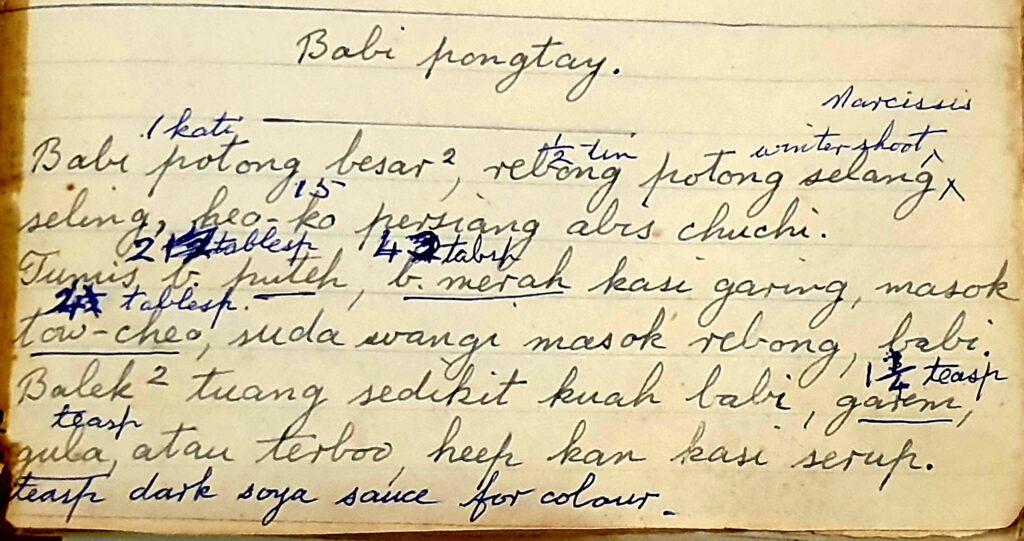 Babi pongtay.
Narcissis
1 kati ½ tin winter shoot,
Babi potong besar², rebong potong selang
15
seling, heo-ko persiang abis chuchi.
2 tablesp 4 tabsp
Tumis b. puteh, b. merah kasi garing, masok
4 tablesp.
tow-cheo, suda wangi masok rebong, babi.
Balek² tuang sedikit kuah babi, garem,
teasp
teasp
gula, atau terboo, heep kan kasi serup.
teasp dark soya sauce for colour.